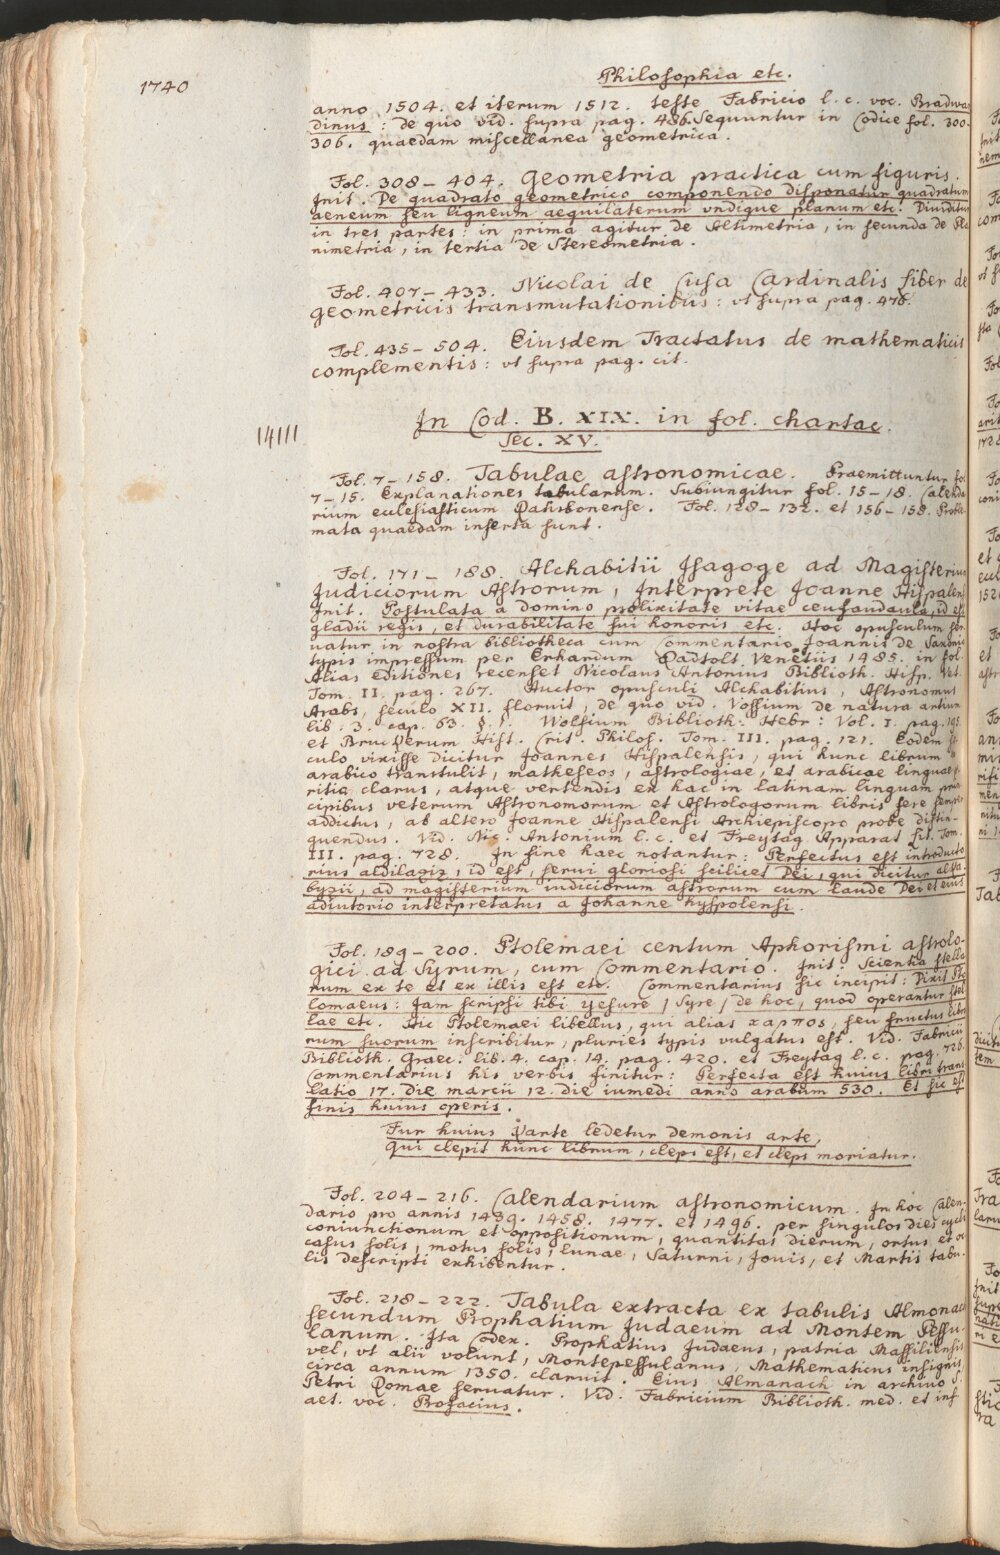 1740
Philosophia etc.
anno 1504. et iterum 1512. teste Fabricio l. c. voc. Bradwa
dinus: de quo vid. supra pag. 486. Sequuntur in Codice fol. 300-
306. quaedam miscellanea geometrica.
Fol. 308-404. Geometria practica cum figuris.
Init. De quadrato geometrico componendo disponatur quadratum
aeneum seu ligneum aequilaterum vndique planum etc. Diuiditur
in tres partes: in prima agitur de Altimetria, in secunda de Pla
nimetria, in tertia de Stereometria.
Fol. 407-433. Nicolai de Cusa Cardinalis liber de
geometricis transmutationibus: vt supra pag. 478.
Fol. 435-504. Eiusdem Tractatus de mathematicis
complementis: vt supra pag. cit.
14111
In Cod. B. XIX. in fol. chartac.
Sec. XV.
Fol. 7-158. Tabulae astronomicae. Praemittuntur fol
7-15. Explanationes tabularum. Subiungitur fol. 15-18. Calenda
rium ecclesiasticum Ratisbonense. Fol. 128-132. et 156-158. Proble
mata quaedam inserta sunt.
Fol. 171-188. Alchabitii Isagoge ad Magisterium
Judiciorum Astrorum, Interprete Joanne Hispalens
Init. Postulata a domino prolixitate vitae ceufandaula, id est
gladii regis, et durabilitate sui honoris etc. Hoc opusculum ser
uatur in nostra bibliotheca cum Commentario Joannis de Saxonia
typis impressum per Erhardum Radtolt Venetiis 1485. in fol.
Alias editiones recenset Nicolaus Antonius Biblioth. Hisp. Vet.
Tom. II. pag. 267. Auctor opusculi Alchabitius, Astronomus
Arabs, seculo XII. floruit, de quo vid. Vossium de natura artium
lib. 3. cap. 63. §. 1. Wolfium Biblioth. Hebr: Vol. I. pag. 195.
et Bruckerum Hist. Crit. Philos. Tom. III. pag. 121. Eodem se
culo vixisse dicitur Joannes Hispalensis, qui hunc librum ex
arabico transtulit, matheseos, astrologiae, et arabicae linguae pe
ritia clarus, atque vertendis ex hac in latinam linguam prin
cipibus veterum Astronomorum et Astrologorum libris fere semper
addictus, ab altero Joanne Hispalensi Archiepiscopo probe distin-
quendus. Vid. Nic. Antonium l. c. et Freytag Apparat. lit. Tom.
III. pag. 728. In fine haec notantur: Perfectus est introducto
rius aldilaziz, id est, serui gloriosi scilicet Dei, qui dicitur alka-
byzii, ad magisterium iudiciorum astrorum cum laude Dei et eius
adiutorio interpretatus a Johanne hyspolensi.
Fol. 189-200. Ptolemaei centum Aphorismi astrolo-
gici ad Syrum, cum Commentario. Init. Scientia stella
rum ex te et ex illis est etc. Commentarius sic incipit: Dixit Pto
lomaeus: Jam scripsi tibi yesure, (Syre) de hoc, quod operantur stel
lae etc. Hic Ptolemaei libellus, qui alias χαρπος, seu fructus libro
rum suorum inscribitur, pluries typis vulgatus est. Vid. Fabricii
Biblioth. Graec. lib. 4. cap. 14. pag. 420. et Freytag l. c. pag. 726.
Commentarius his verbis finitur: Perfecta est huius libri trans
latio 17. die marcii 12. die iumedi anno arabum 530. Et sic est
finis huius operis.
Fur huius Parte ledetur demonis arte,
Qui clepit hunc librum, cleps est, et cleps moriatur.
Fol. 204-216. Calendarium astronomicum. In hoc Calen-
dario pro annis 1439. 1458. 1477. et 1496. per singulos dies cycli
coniunctionum et oppositionum, quantitas dierum, ortus et oc
casus solis, motus solis, lunae, Saturni, Jouis, et Martis tabu-
lis descripti exhibentur.
Fol. 218-222. Tabula extracta ex tabulis Almonach
secundum Prophatium Judaeum ad Montem Pessu-
lanum. Ita Codex. Prophatius Judaeus, patria Massiliensis
vel, vt alii volunt, Montepessulanus, Mathematicus insignis
circa annum 1350. claruit. Eius Almanach in archiuo S.
Petri Romae seruatur. Vid. Fabricium Biblioth. med. et inf.
aet. voc. Profacius.